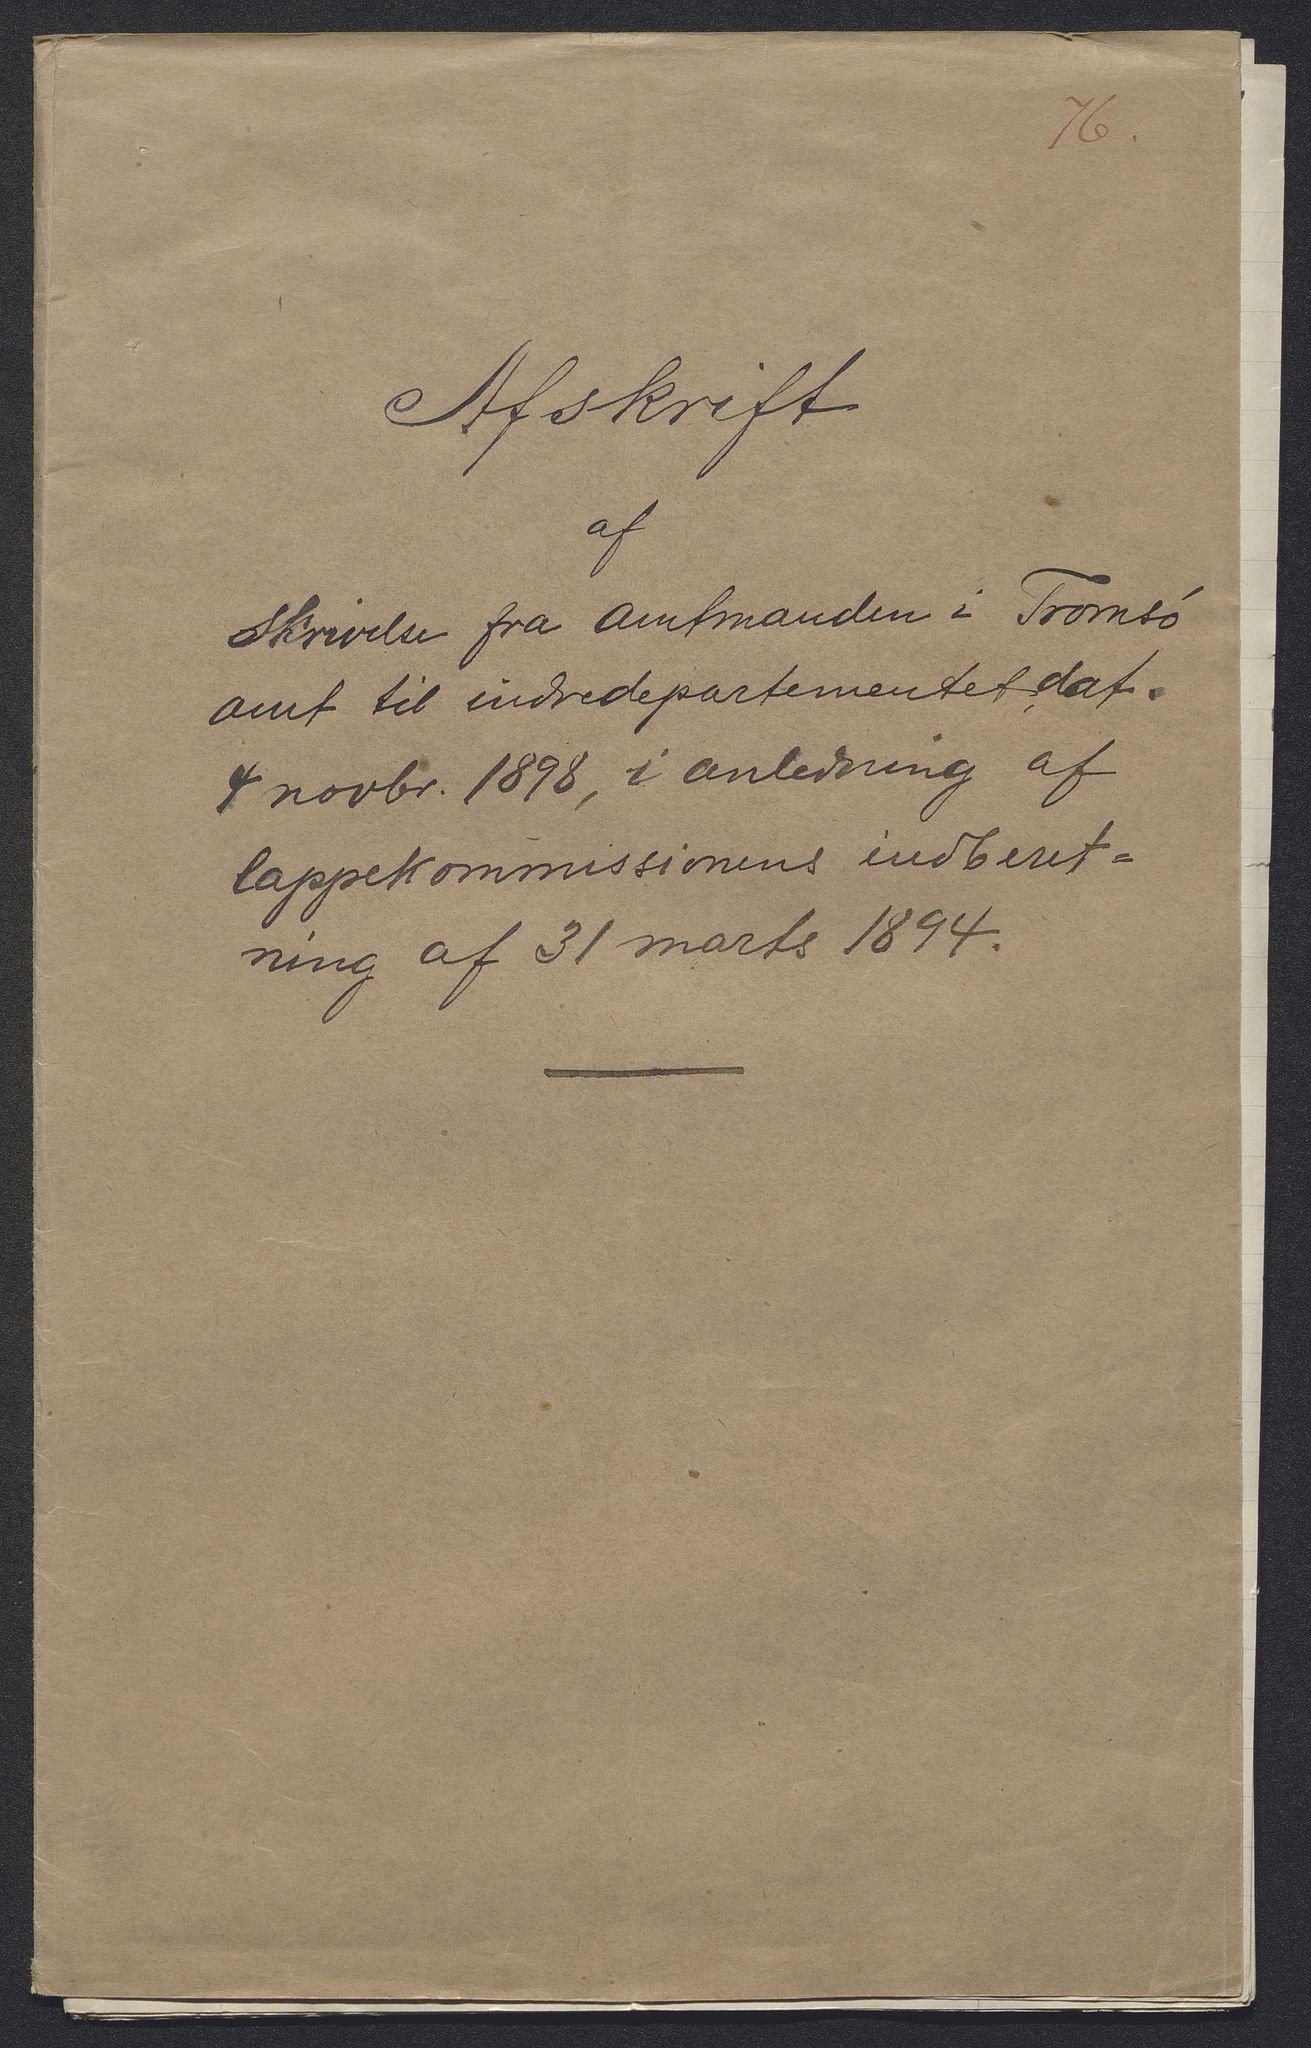 76.
Afskrift
af
skrivelse fra amtmanden i Tromsø
amt til indredepartementet, dat.
4 novbr. 1898, i anledning af
lappekommissionens indberet=
ning af 31 marts 1894.